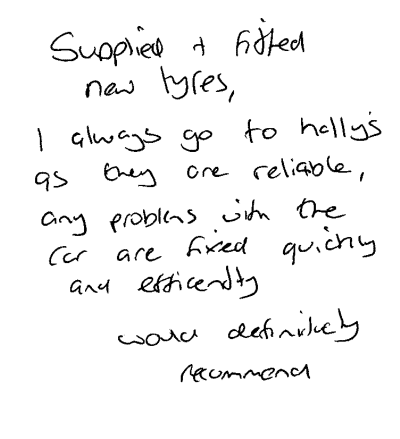 Supplied + fitted
new tyres,
I always go to hally's
as they are reliable,
any problems with the
car are fixed quickly
and efficently
would definitely
recommend